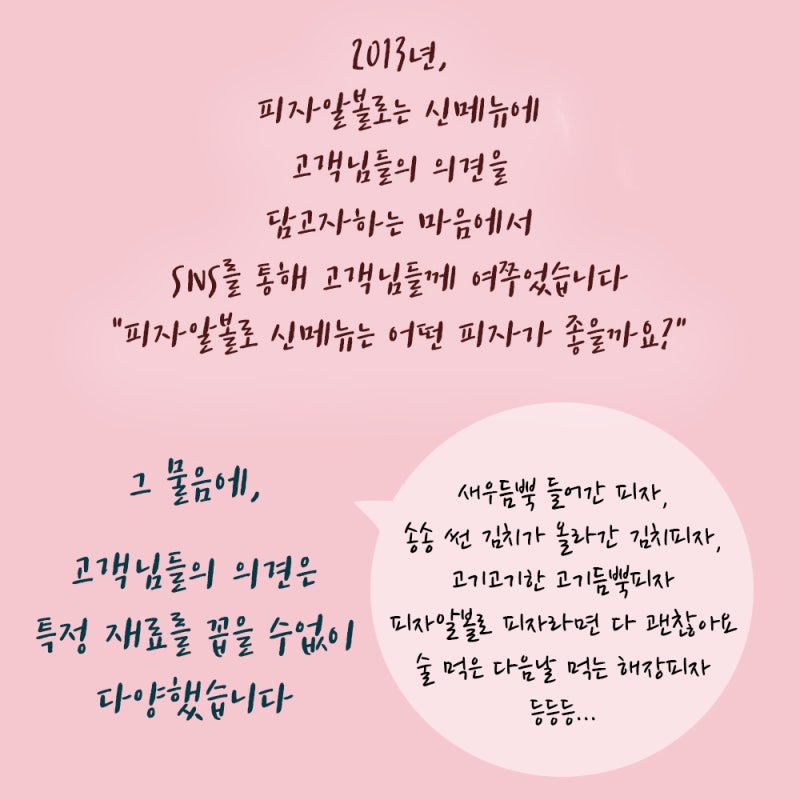 2013년,
피자알볼로는 신메뉴에
고객님들의 의견을
담고자하는 마음에서
SNS를 통해 고객님들께 여쭈었습니다
"피자알볼로 신메뉴는 어떤 피자가 좋을까요?"
그 물음에,
고객님들의 의견은
특정 재료를 꼽을 수없이
다양했습니다
새우듬뿍 들어간 피자,
송송 썬 김치가 올라간 김치피자,
고기고기한 고기듬뿍피자
피자알볼로 피자라면 다 괜찮아요
술 먹은 다음날 먹는 해장피자
등등등...